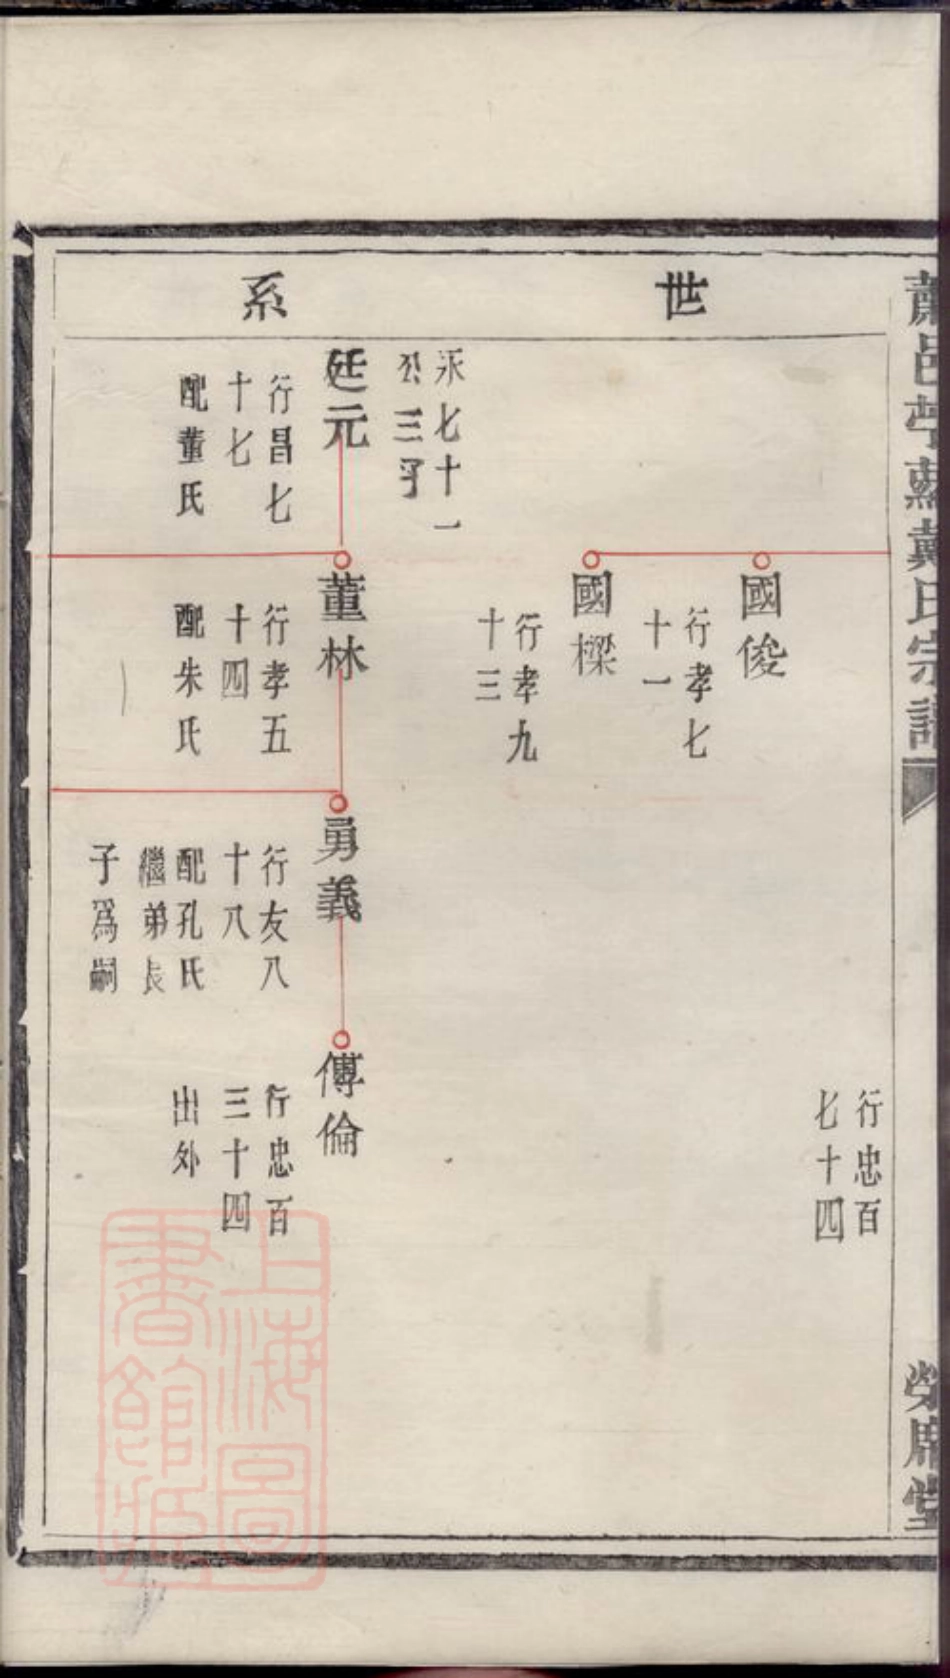 蕭邑苧戴氏宗譜
榮席堂
世系
行忠百
七十四
國俊
行孝七
十一
國樑
行孝九
十三
永七十一
公三子
廷元
行昌七
十七
配董氏
董林
行孝五
十四
配朱氏
勇義
行友八
十八
配孔氏
繼弟長
子爲嗣
傳倫
行忠百
三十四
出外
上海圖
書館藏